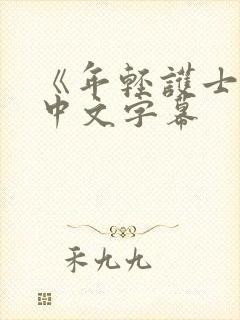 《年轻護士
中文字幕
禾九九